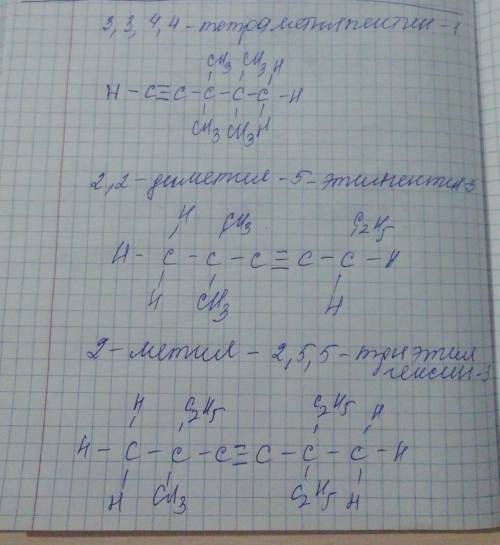 3, 3, 4, 4 - тетраметилпентин - 1
CH3 CH3 H
H - C ≡ C - C - C - C - H
CH3 CH3 H
2, 2 - диметил - 5 - этилпентин-3
H CH3 C2H5
H - C - C - C ≡ C - C - H
H CH3 H
2 - метил - 2, 5, 5 - триэтил
гексин-3
H C2H5 C2H5 H
H - C - C - C ≡ C - C - C - H
H CH3 C2H5 H